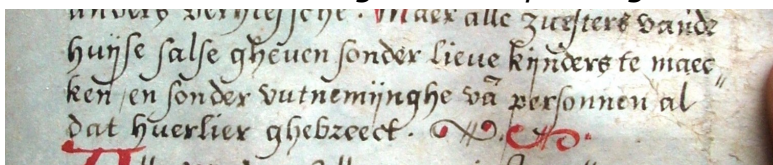 anders verhiessche. Maer alle zuesters vande
huyse salse gheuen sonder lieue kijnders te maec„
ken, en sonder vutnemijnghe vā personnen al
dat huerlier ghebreect.